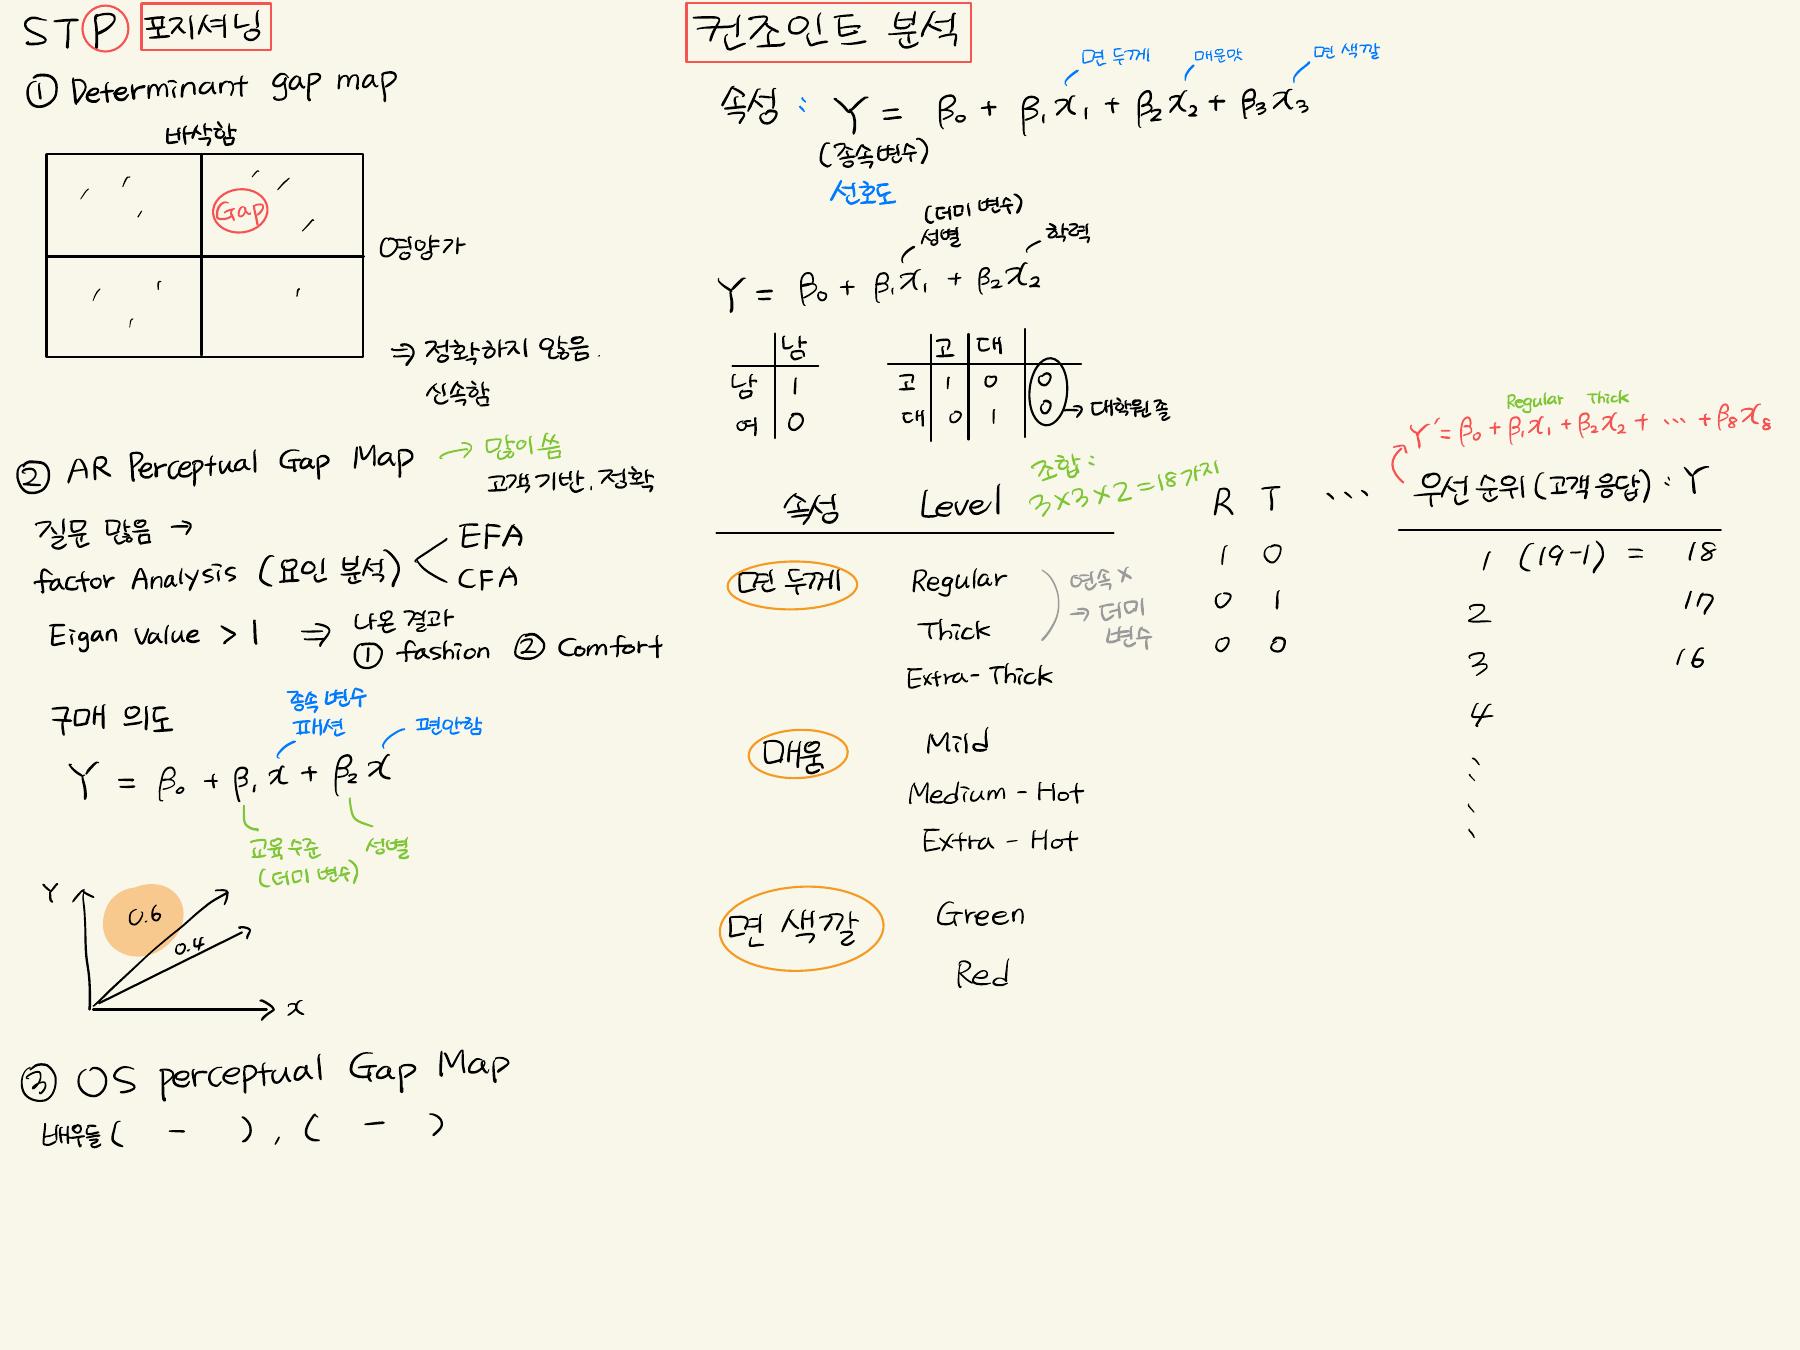 STP 포지셔닝
① Determinant gap map
바삭함
Gap
영양가
⇒ 정확하지 않음.
신속함
② AR Perceptual Gap Map → 많이 씀
고객 기반, 정확
질문 많음 →
factor Analysis (요인 분석) < EFA
CFA
Eigan value > 1 ⇒ 나온 결과
① fashion ② Comfort
구매 의도
종속 변수
패션
편안함
Y = β₀ + β₁x + β₂x
교육수준
(더미 변수)
성별
Y
0.6
0.4
x
③ OS perceptual Gap Map
배우들 ( - ), ( - )
컨조인트 분석
면 두께 매운맛 면 색깔
속성 : Y = β₀ + β₁x₁ + β₂x₂ + β₃x₃
(종속변수)
선호도
(더미 변수)
성별
학력
Y = β₀ + β₁x₁ + β₂x₂
남
남 1
여 0
고 대
고 1 0 0
대 0 1 0 → 대학원 졸
조합:
3×3×2=18가지
속성 Level
면 두께 Regular
Thick
Extra-Thick
연속 X
→ 더미
변수
매움 Mild
Medium - Hot
Extra - Hot
면 색깔 Green
Red
R T ...
1 0
0 1
0 0
Regular Thick
Y' = β₀ + β₁x₁ + β₂x₂ + ... + β₈x₈
우선순위 (고객 응답) : Y
1 (19-1) = 18
2 17
3 16
4